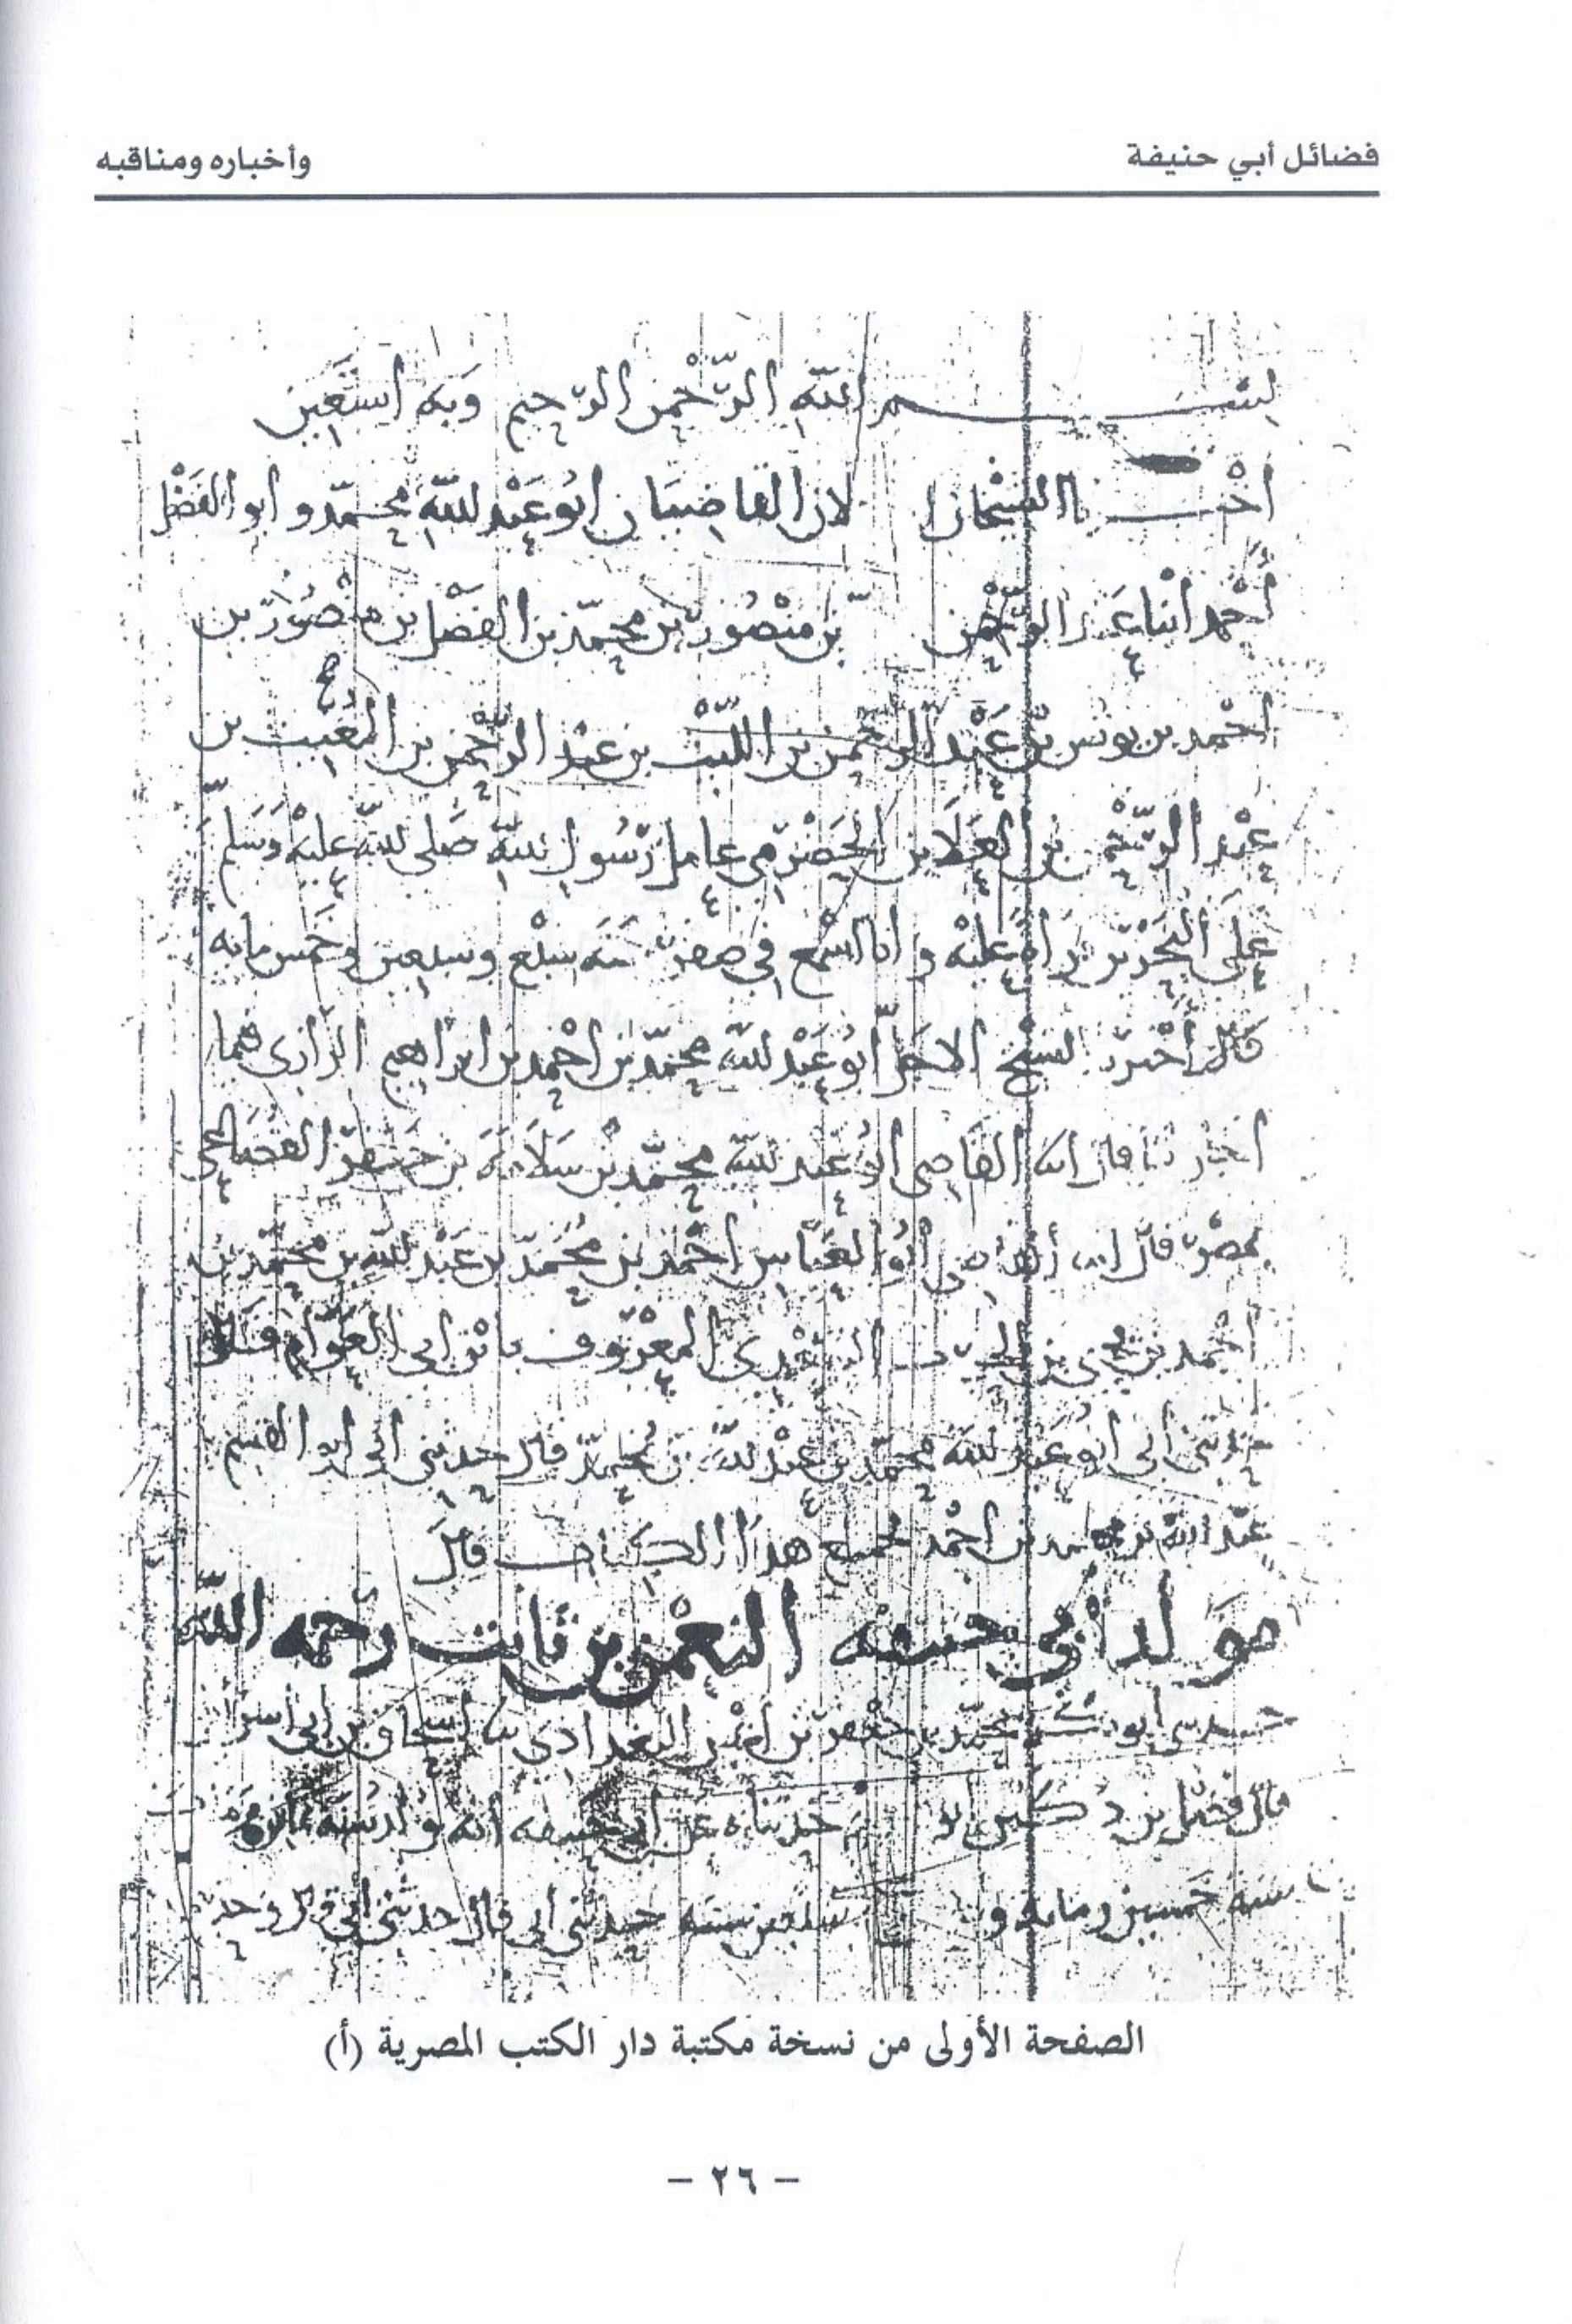 فضائل أبي حنيفة
وأخباره ومناقبه
بسم الله الرحمن الرحيم وبه استعين
اخبرنا الشيخان الاجلان القاضيان ابو عبد الله محمد و ابو الفضل
احمد انبا عبد الرحمن بن منصور بن محمد بن الفضل بن منصور بن
احمد بن يونس بن عبد الرحمن بن الليث بن عبد الرحمن بن المغيث بن
عبد الرحمن بن العلا بن الحضرمي عامل رسول الله صلى الله عليه وسلم
على البحرين قراة عليه وانا اسمع في صفر سنه سبع وسبعين وخمس مايه
قال اخبرنا الشيخ الاجل ابو عبد الله محمد بن احمد بن ابراهيم الرازي فيما
اجاز لنا قال انبا القاضي ابو عبد الله محمد بن سلامة بن جعفر القضاعي
بمصر قال انبا القاضي ابو العباس احمد بن محمد بن عبد الله بن محمد بن
احمد بن يحيى بن الحارث السعدي المعروف بابن ابي العوام قال
حدثني ابي ابو عبد الله محمد بن عبد الله بن محمد قال حدثني ابي ابو القسم
عبد الله بن محمد بن احمد بجميع هذا الكتاب قال
مولد ابي حنيفه النعمن بن ثابت رحمه الله
حدثني ابو محمد بن جعفر بن اعين البغدادي ثنا اسحاق بن ابي اسرائيل
قال فضل بن دكين ابو نعيم حدثناه عن ابي حنيفه انه ولد سنة ثمانين
سنه خمسين ومايه و سبعين سنه حدثني ابي قال حدثني ابي قال وحدثني
الصفحة الأولى من نسخة مكتبة دار الكتب المصرية (أ)
- ٢٦ -